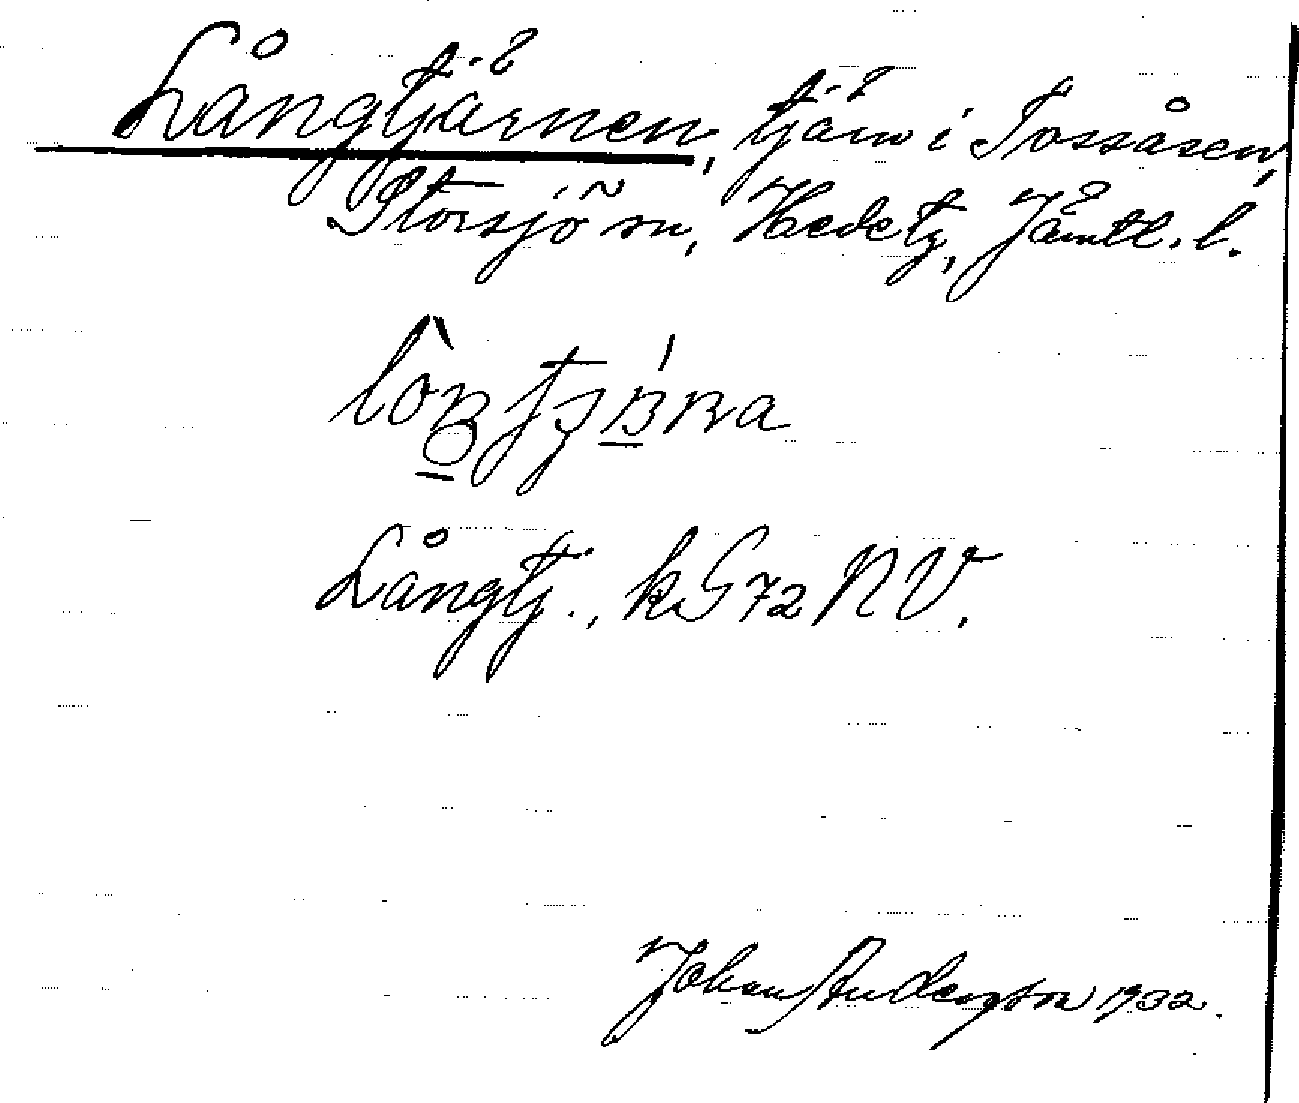 Långtjärnen, tjärn i Tossåsen,
Storsjö sn, Hede tg, Jämtl. l.
Långtj., kG72NV.
Johan Anderson 1932.